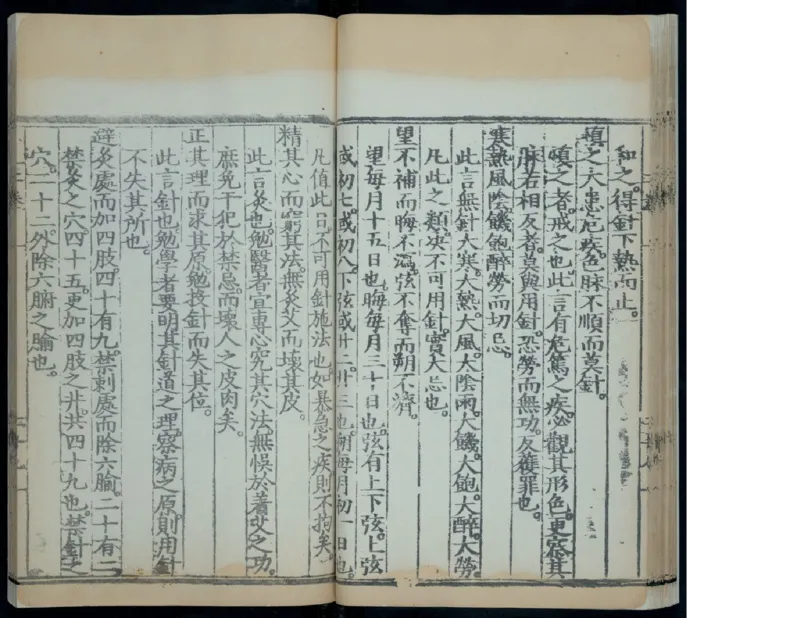 和之。得針下熱而止。
慎之大患危疾。色脉不順而莫針。
慎之者。戒之也。此言有危篤之疾。必觀其形色。更察其
脉。若相反者。莫與用針。恐勞而無功。反獲罪也。
寒熱風陰饑飽醉勞而切忌。
此言無針大寒。大熱。大風。大陰雨。大饑。大飽。大醉。大勞。
凡此之類。决不可用針。實大忌也。
望不補而晦不瀉。弦不奪而朔不濟。
望每月十五日也。晦每月三十日也。弦有上下弦。上弦
或初七。或初八。下弦或廿二。廿三也。朔每月初一日也。
凡值此日。不可用針施法也。如暴急之疾。則不拘矣。
精其心而窮其法。無灸艾而壞其皮。
此言灸也。勉醫者宜專心究其穴法。無悞於著艾之功。
庶免干犯於禁忌。而壞人之皮肉矣。
正其理而求其原。勉投針而失其位。
此言針也。勉學者要明其針道之理。察病之原。則用針
不失其所也。
避灸處而加四肢。四十有九。禁刺處而除六腧。二十有二
禁灸之穴。四十五。更加四肢之井。共四十九也。禁針之
穴。二十二。外除六腑之腧也。